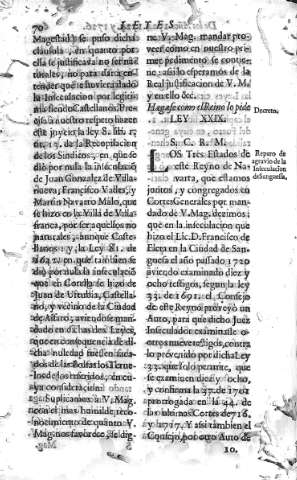 70 LEYES
Magestad) se puso dicha
clausula, en quanto por
ella se justificava no ser na-
torales, no para dar a en-
tender que estuviera dada
la Inseculacion por legiti-
ma siendo Castellanos. Pro-
este juycio la ley 8. lib. 1.
tit. 15. de la Recopilacion
de los Sindicos, en que se
diò por nula la inseculacion
de Juan Gonzalez de Villa-
nueva, Francisco Valles, y
Martin Navarro Malo, que
se hizo en la Villa de Villa-
franca, por ser aquellos no
naturales, aunque Caste-
llanos: y la Ley 81. de
en que tambien se
diò por nula la inseculació
que en Corella se hizo de
Juan de Urtubia, Castella-
no, y vezino de la Ciudad
de Alfaro, aviendose mani-
dado en dichas dos Leyes,
que en consequencia de di-
cha nulidad fuessen saca-
dos de las Bolsas los Terue-
los de los referidos, en cu-
ya consideracion:
Suplicamos à V. Mag.
con el mas humilde reco-
nocimiento de quanto V.
Mag. nos favorece, se dig-
ne V. Mag. mandar pro-
veer como en nuestro pri-
mer pedimento se contie-
ne: assi lo esperamos de la
Real justificacion de V. M.
y en ello &c.
Hagase como el Reino lo pide
Decreto.
LEY XXIX.
S. C. R. M.
LOS Tres Estados de
este Reyno de Na-
varra, que estamos
juntos, y congregados en
Cortes Generales por man-
dado de V. Mag. dezimos:
que en la inseculacion que
hizo el Lic. D. Francisco de
en la Ciudad de San-
guesa el año passado 1720
aviendo examinado diez y
ocho testigos, segun la ley
35. de 1691. el Consejo
de este Reyno proveyò un
Auto, para que dicho Juez
Inseculador examinasse
otros nueve testigos, contra
lo proveido por dicha Ley
35. que solo permite, que
se examinen diez y ocho,
y confirma la 37. de 1701
prorrogada en la 44. de
las ultimas Cortes de 716.
y 1717. Y assi tambien el
Consejo, por otro Auto de
10.
Reparo de
agravio de la
Inseculacion
de Sanguesa.